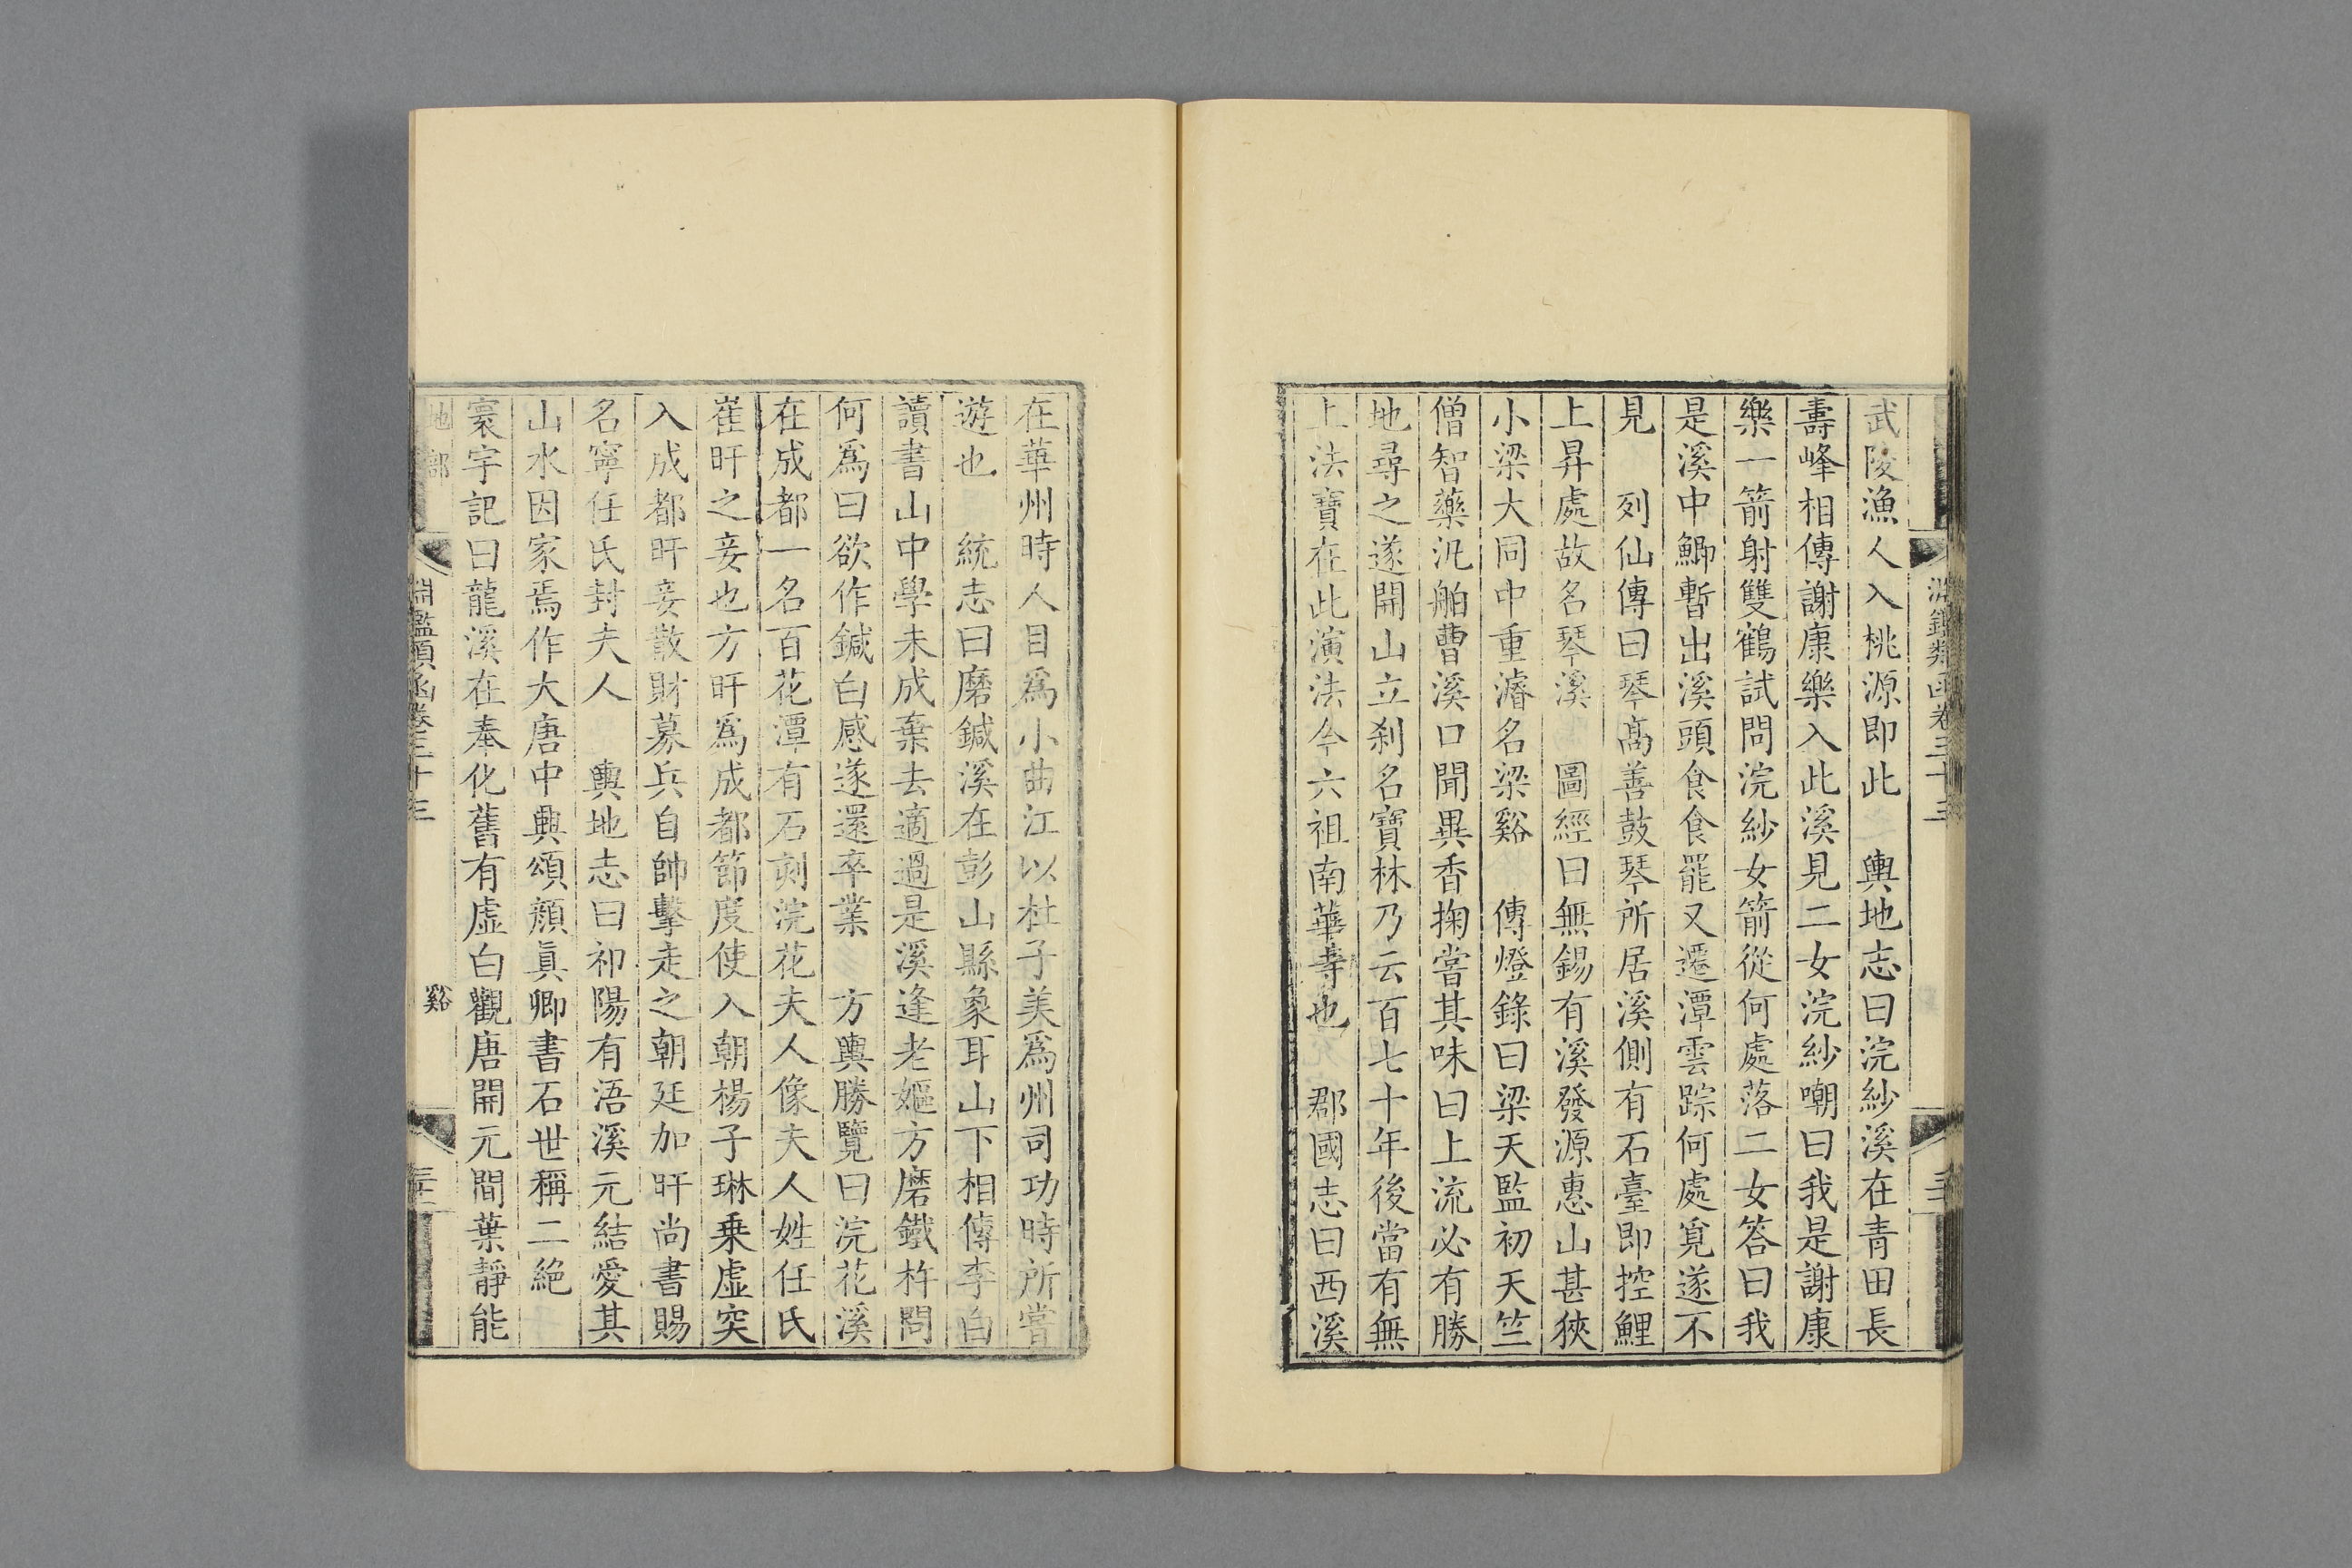 淵鑑類函卷三十三
武陵漁人入桃源即此　輿地志曰浣紗溪在青田長
壽峰相傳謝康樂入此溪見二女浣紗嘲曰我是謝康
樂一箭射雙鶴試問浣紗女箭從何處落二女答曰我
是溪中鯽暫出溪頭食食罷又還潭雲踪何處覓遂不
見　列仙傳曰琴高善鼓琴所居溪側有石臺即控鯉
上昇處故名琴溪　圖經曰無錫有溪發源惠山甚狹
小梁大同中重濬名梁谿　傳燈錄曰梁天監初天竺
僧智藥汎舶曹溪口聞異香掬嘗其味曰上流必有勝
地尋之遂開山立刹名寶林乃云百七十年後當有無
上法寶在此演法今六祖南華寺也　郡國志曰西溪
在華州時人目爲小曲江以杜子美爲州司功時所嘗
遊也　統志曰磨鍼溪在彭山縣象耳山下相傳李白
讀書山中學未成棄去適過是溪逢老嫗方磨鐵杵問
何爲曰欲作鍼白感遂還卒業　方輿勝覽曰浣花溪
在成都一名百花潭有石刻浣花夫人像夫人姓任氏
崔旰之妾也方旰爲成都節度使入朝楊子琳乗虛突
入成都旰妾散財募兵自帥擊走之朝廷加旰尚書賜
名寧任氏封夫人　輿地志曰祁陽有浯溪元結愛其
山水因家焉作大唐中興頌顏眞卿書石世稱二絕
寰宇記曰龍溪在奉化舊有虛白觀唐開元間葉靜能
地部
淵鑑類函卷三十三
谿